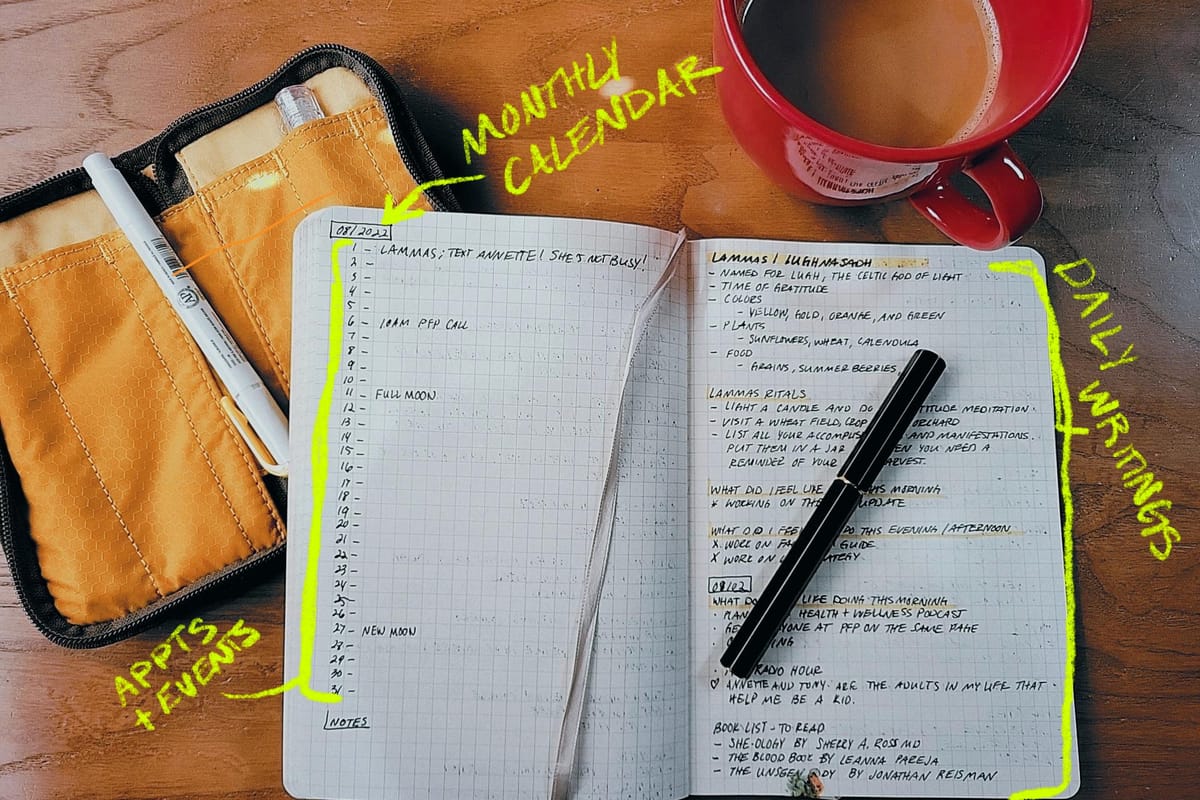 MONTHLY
CALENDAR
APPTS
+ EVENTS
DAILY WRITINGS
08/2022
1 - LAMMAS; TEXT ANNETTE! SHE'S NOT BUSY!
2 -
3 -
4 -
5 -
6 - 10AM PFP CALL
7 -
8 -
9 -
10 -
11 - FULL MOON
12 -
13 -
14 -
15 -
16 -
17 -
18 -
19 -
20 -
21 -
22 -
23 -
24 -
25 -
26 -
27 - NEW MOON
28 -
29 -
30 -
31 -
NOTES
LAMMAS / LUGHNASADH
- NAMED FOR LUGH, THE CELTIC GOD OF LIGHT
- TIME OF GRATITUDE
- COLORS
- YELLOW, GOLD, ORANGE, AND GREEN
- PLANTS
- SUNFLOWERS, WHEAT, CALENDULA
- FOOD
- GRAINS, SUMMER BERRIES,
LAMMAS RITALS
- LIGHT A CANDLE AND DO MEDITATION.
- VISIT A WHEAT FIELD, CROP ORCHARD
- LIST ALL YOUR AND MANIFESTATIONS.
PUT THEM IN A JAR YOU NEED A
REMINDER OF YOUR
WHAT DID I FEEL LIKE THIS MORNING
* WORKING ON UPDATE
WHAT DID I DO THIS EVENING/AFTERNOON
X WORK ON GUIDE
X WORK ON
08/02
WHAT LIKE DOING THIS MORNING
HEALTH + WELLNESS PODCAST
AT PFP ON THE SAME PAGE
RADIO HOUR
♡ ANNETTE AND TONY ARE THE ADULTS IN MY LIFE THAT
HELP ME BE A KID.
BOOK LIST - TO READ
- SHE-OLOGY BY SHERRY A. ROSS MD
- THE BLOOD BOOK BY LEANNA PAREJA
- THE BY JONATHAN REISMAN